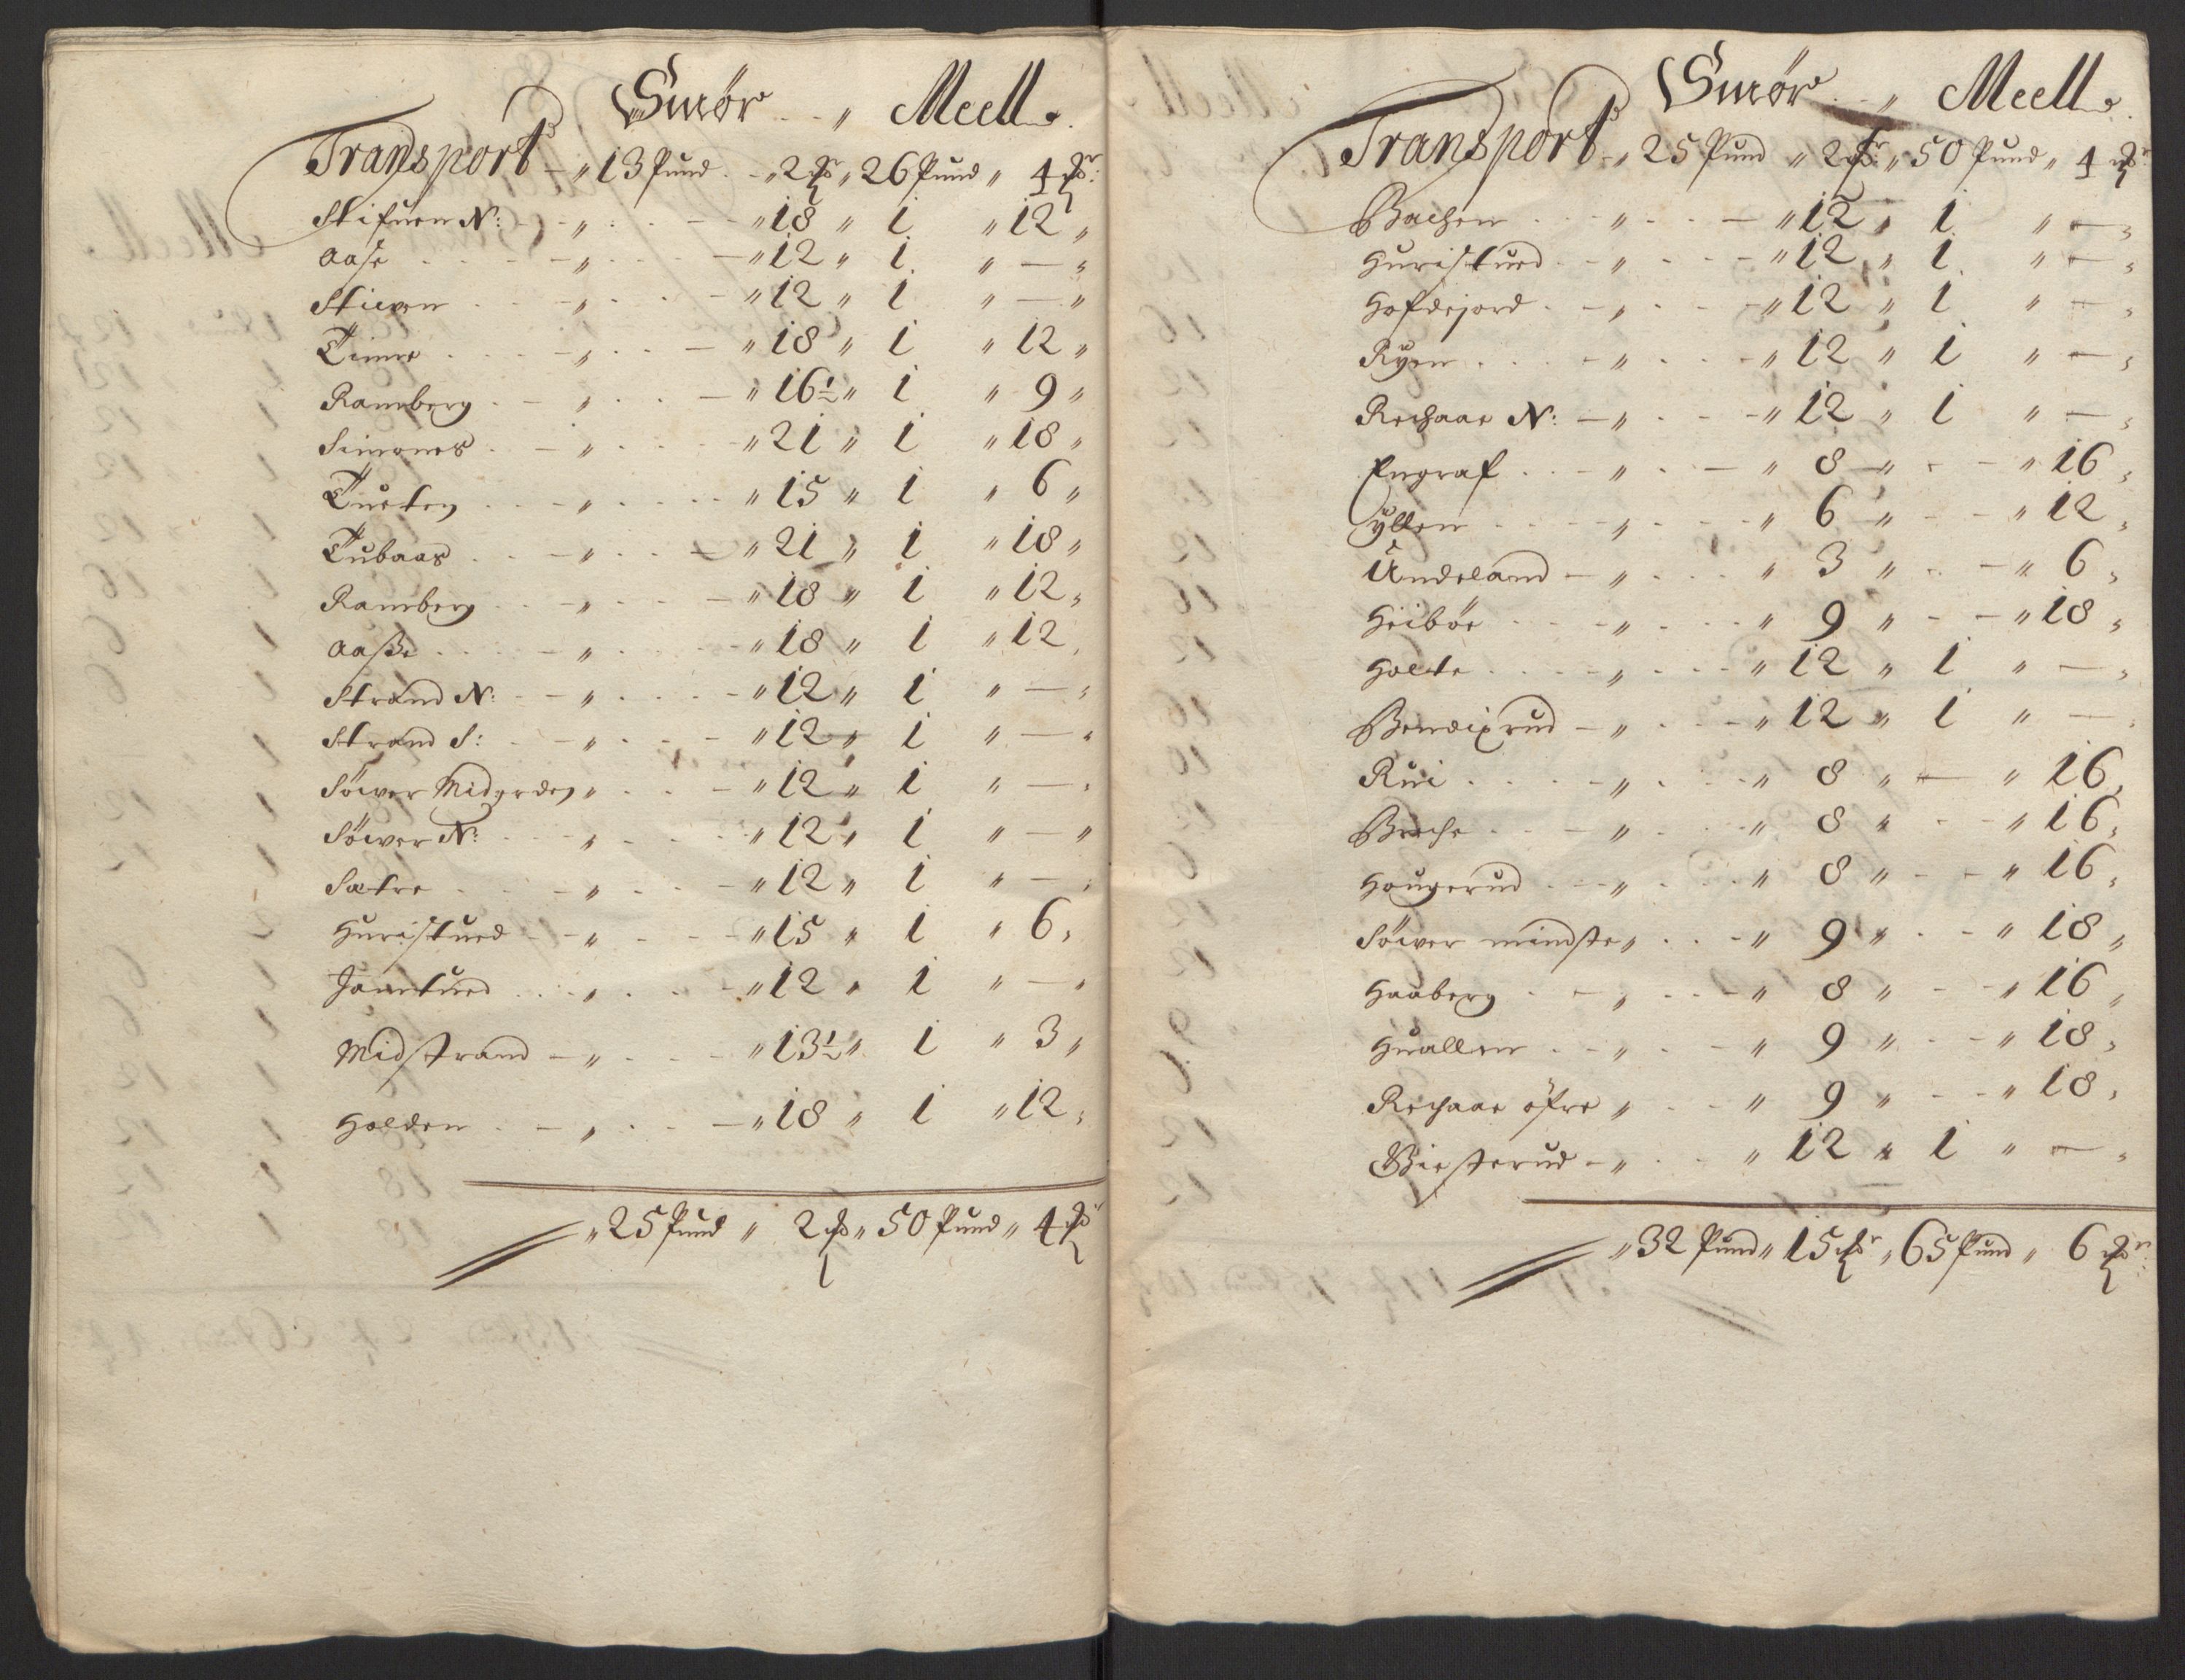 Smör „ Meell.
Transport – „ 13 Pund. – „ 2 ℔r „ 26 Pund „ 4 ℔r:
Stifuen N: – „ – „ 18 „ 1 „ 12 „
Aase – „ – „ 12 „ 1 „ — „
Stiewen – „ – „ 12 „ 1 „ — „
Tinne – „ – „ 18 „ 1 „ 12 „
Ramberg – „ – „ 16½ „ 1 „ 9 „
Simones – „ – „ 21 „ 1 „ 18 „
Tueten – „ – „ 15 „ 1 „ 6 „
Tubaas – „ – „ 21 „ 1 „ 18 „
Ramberg – „ – „ 18 „ 1 „ 12 „
Aasße – „ – „ 18 „ 1 „ 12 „
Strand N: – „ – „ 12 „ 1 „ — „
Strand S: – „ – „ 12 „ 1 „ — „
Söwer Midgrden „ – „ 12 „ 1 „ — „
Söwer N: – „ – „ 12 „ 1 „ — „
Sætre – „ – „ 12 „ 1 „ — „
Huristued – „ – „ 15 „ 1 „ 6 „
Jamtued – „ – „ 12 „ 1 „ — „
Midstrand – „ – „ 13½ „ 1 „ 3 „
Holden – „ – „ 18 „ 1 „ 12 „
„ 25 Pund „ 2 ℔ „ 50 Pund „ 4 ℔r
Smör „ Meell.
Transport – „ 25 Pund „ 2 ℔r „ 50 Pund „ 4 ℔r
Bachen – „ – „ 12 „ 1 „ — „
Huristued – „ – „ 12 „ 1 „ — „
Hofdejord – „ – „ 12 „ 1 „ — „
Ryen – „ – „ 12 „ 1 „ — „
Rechaae N: – „ – „ 12 „ 1 „ — „
Engraf – „ – „ 8 – „ – „ 16 „
Cyllen – „ – „ 6 „ – „ 12 „
Undeland – „ – „ 3 „ – „ 6 „
Heiböe – „ – „ 9 „ – „ 18 „
Holte – „ – „ 12 „ 1 „ — „
Bendixrud – „ – „ 12 „ 1 „ — „
Rui – „ – „ 8 „ — „ 16 „
Breche – „ – „ 8 „ – „ 16 „
Hougerud – „ – „ 8 „ – „ 16 „
Söwer mindste „ – „ 9 „ – „ 18 „
Haaberg – „ – „ 8 „ – „ 16 „
Huallen – „ – „ 9 „ – „ 18 „
Rechaae öfre „ – „ 9 „ – „ 18 „
Biesterud – „ – „ 12 „ 1 „ — „
„ 32 Pund „ 15 ℔r „ 65 Pund „ 6 ℔r: